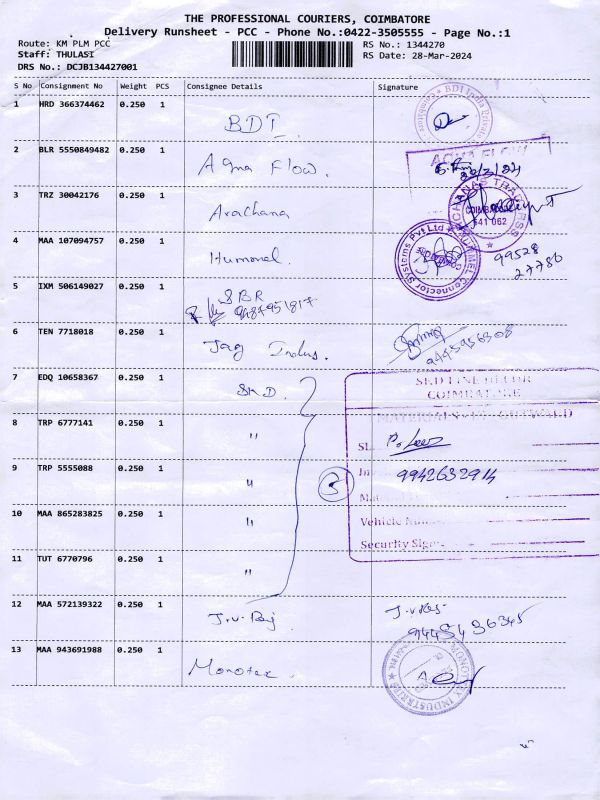 THE PROFESSIONAL COURIERS, COIMBATORE
Delivery Runsheet - PCC - Phone No.:0422-3505555 - Page No.:1
Route: KM PLM PCC
RS No.: 1344270
Staff: THULASI
RS Date: 28-Mar-2024
DRS No.: DCJB134427001
S No Consignment No Weight PCS Consignee Details Signature
1 HRD 366374462 0.250 1 BDI
2 BLR 5550849482 0.250 1 Aqua Flow.
AQUA FLOW
3 TRZ 30042176 0.250 1 Arachana
641 062
4 MAA 107094757 0.250 1 Hummel
Connector Systems Pvt Ltd
99528
27780
5 IXM 506149027 0.250 1 SBR
9487951817
6 TEN 7718018 0.250 1 Jag Indus.
9445956308
7 EDQ 10658367 0.250 1 SKD.
COIMBATORE
8 TRP 6777141 0.250 1 "
9 TRP 5555088 0.250 1 "
3
9942632914
10 MAA 865283825 0.250 1 "
Vehicle
Security Sign
11 TUT 6770796 0.250 1 "
12 MAA 572139322 0.250 1 J.V. Raj
9445436345
13 MAA 943691988 0.250 1 Monotex